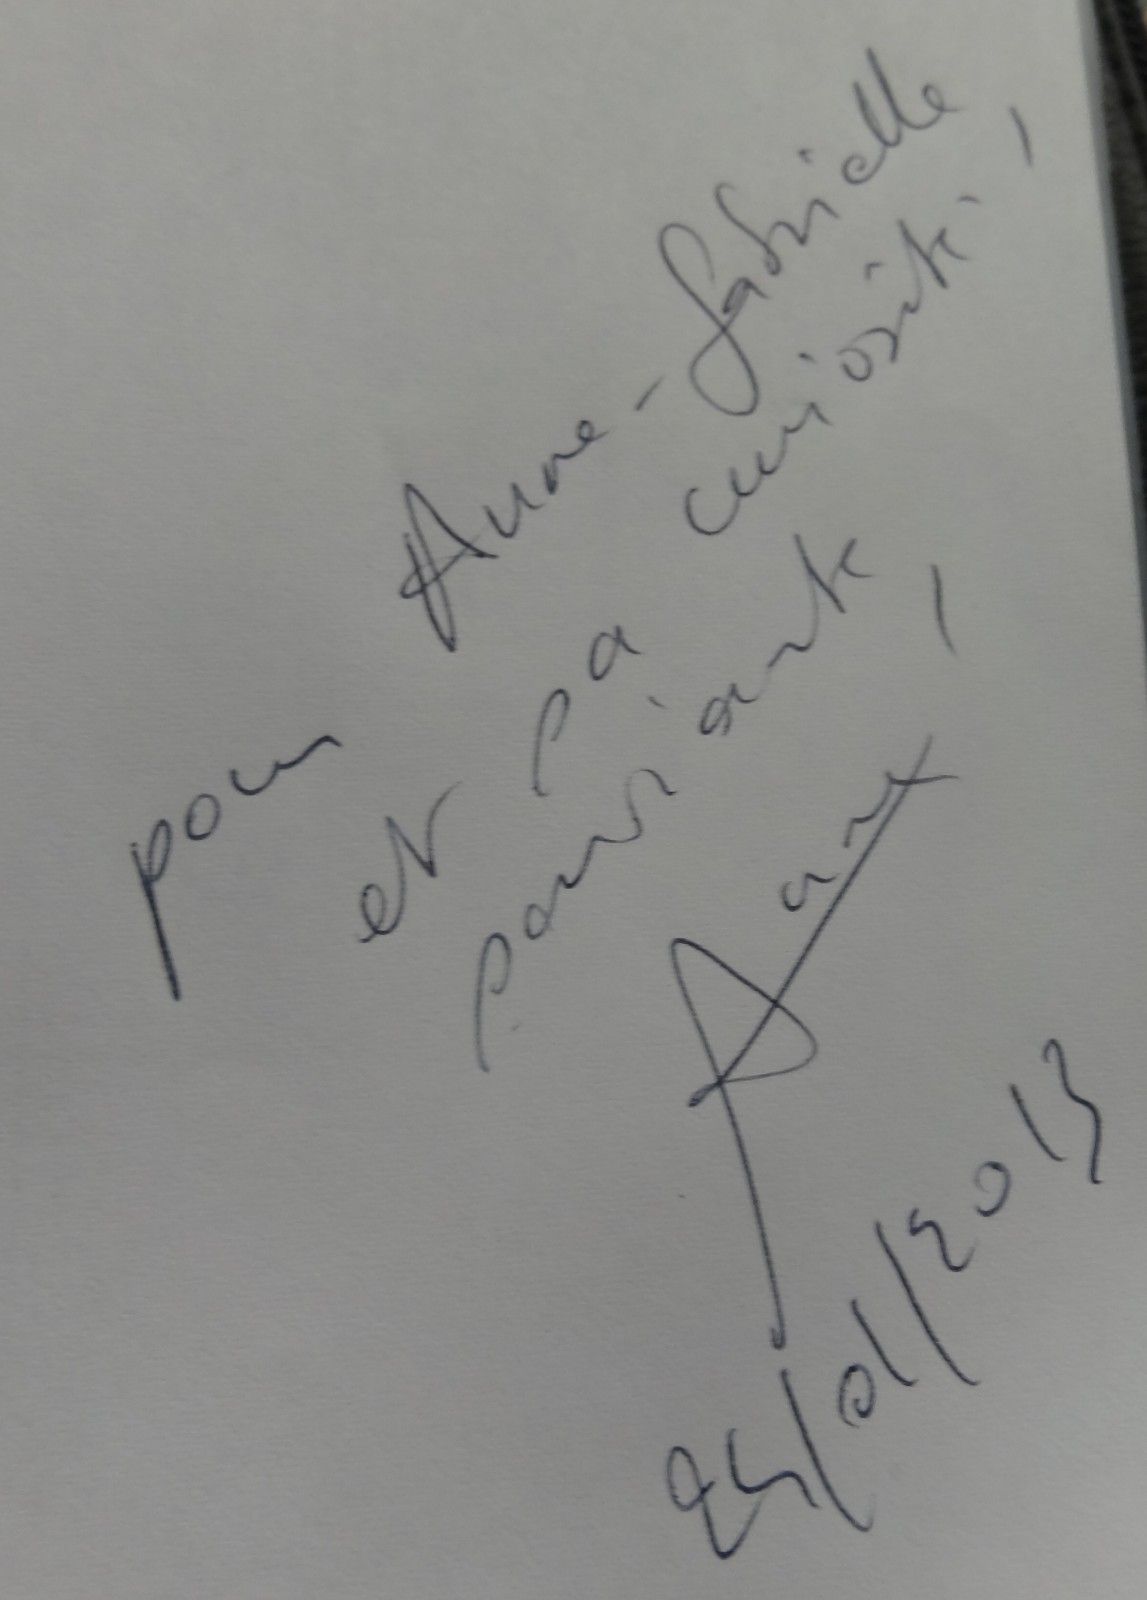 pour Anne-Gabrielle
et sa curiosité,
pensiante,
25/01/2013